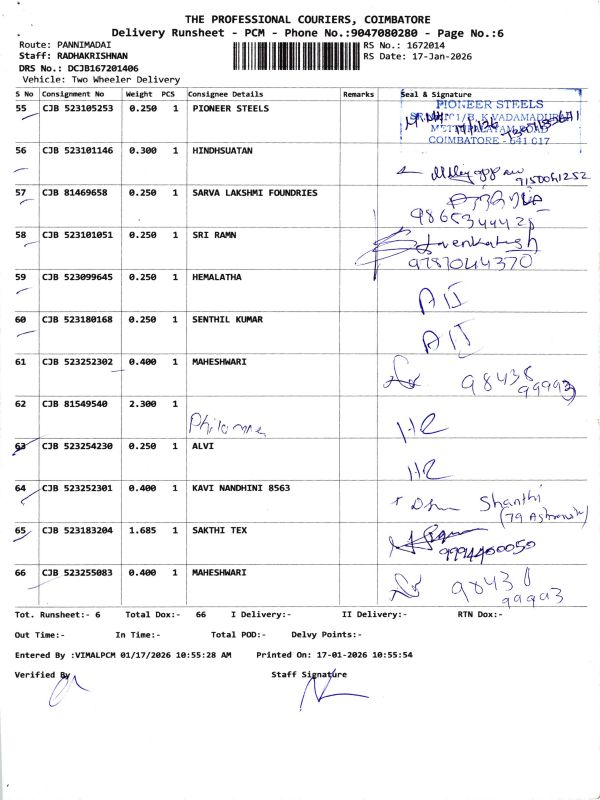 THE PROFESSIONAL COURIERS, COIMBATORE
Delivery Runsheet - PCM - Phone No.:9047080280 - Page No.:6
Route: PANNIMADAI
RS No.: 1672014
Staff: RADHAKRISHNAN
RS Date: 17-Jan-2026
DRS No.: DCJB167201406
Vehicle: Two Wheeler Delivery
S No Consignment No Weight PCS Consignee Details Remarks Seal & Signature
55 CJB 523105253 0.250 1 PIONEER STEELS
PIONEER STEELS
COIMBATORE - 641 017
56 CJB 523101146 0.300 1 HINDHSUATAN
9150061252
57 CJB 81469658 0.250 1 SARVA LAKSHMI FOUNDRIES
58 CJB 523101051 0.250 1 SRI RAMN
Venkatesh
9787044370
59 CJB 523099645 0.250 1 HEMALATHA
60 CJB 523180168 0.250 1 SENTHIL KUMAR
61 CJB 523252302 0.400 1 MAHESHWARI
99993
62 CJB 81549540 2.300 1
63 CJB 523254230 0.250 1 ALVI
64 CJB 523252301 0.400 1 KAVI NANDHINI 8563
Shanthi
65 CJB 523183204 1.685 1 SAKTHI TEX
9994400050
66 CJB 523255083 0.400 1 MAHESHWARI
Tot. Runsheet:- 6 Total Dox:- 66 I Delivery:- II Delivery:- RTN Dox:-
Out Time:- In Time:- Total POD:- Delvy Points:-
Entered By :VIMALPCM 01/17/2026 10:55:28 AM Printed On: 17-01-2026 10:55:54
Verified By Staff Signature